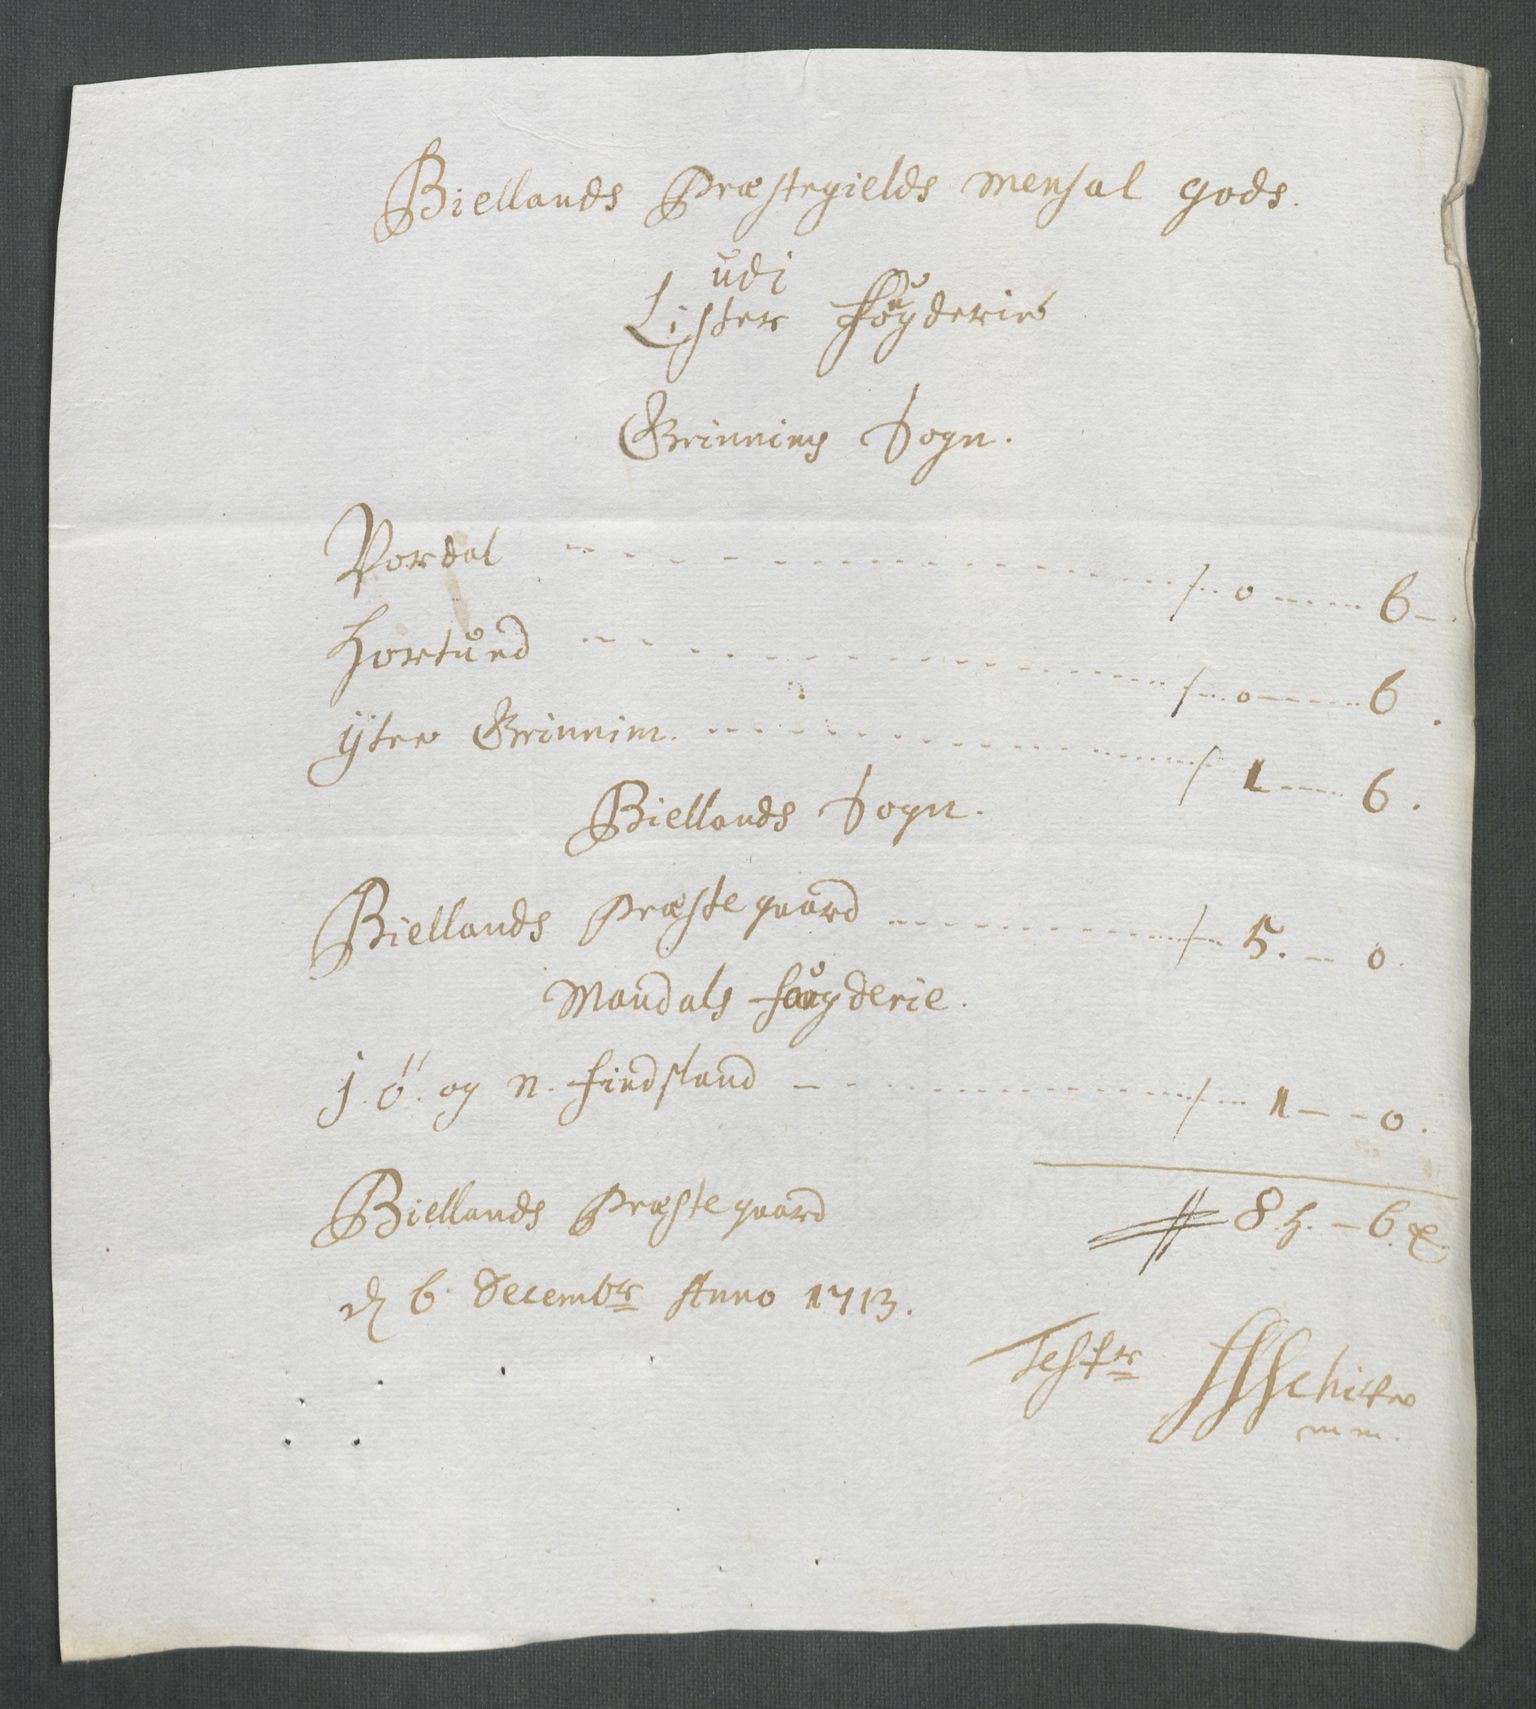 Biellands Præstegields mensal gods.
udi
Lister fougderie
Grinnims Sogn.
Vordal - - - 0 - - - 6 -
Hortund - - - 0 - - - 6.
ÿtre Grinnim. - - - 1 - - - 6.
Biellands Sogn.
Biellands Præste gaard - - - 5. - 0.
Mandals fougderie.
j. ö. og n. findsland - - - 1 - - 0.
8 h. - 6 
Biellands Præste gaard
d 6. Decembr Anno 1713.
Test
mm.